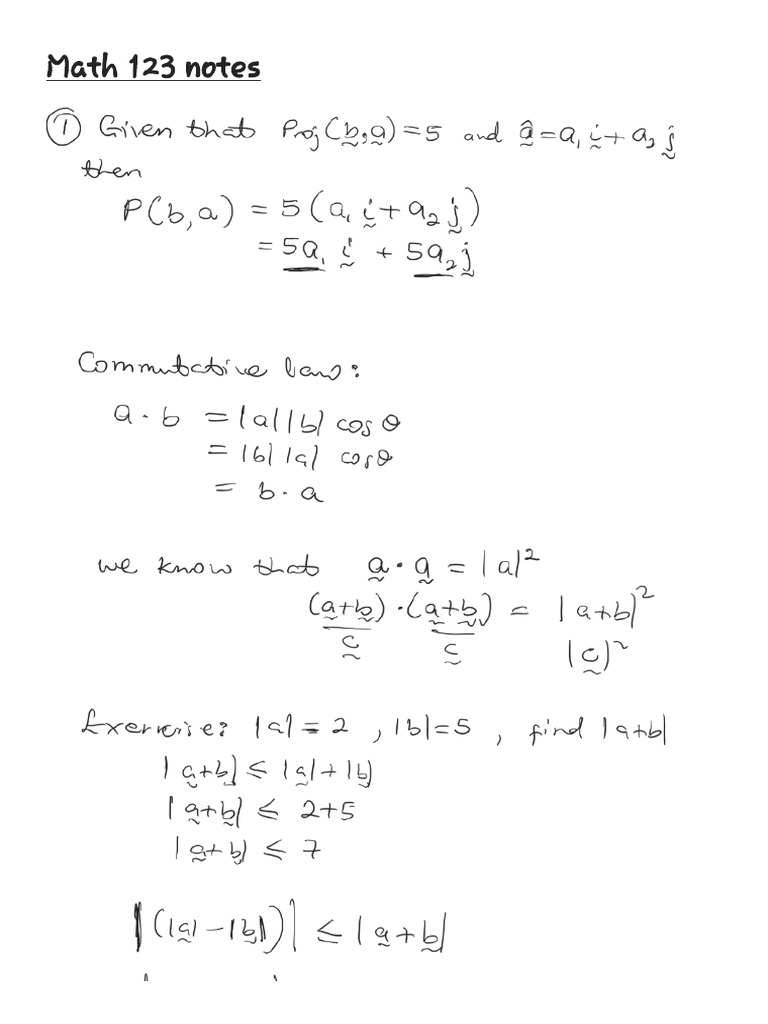 Math 123 notes
① Given that Proj(b,a)=5 and â=a₁i+a₂j
then
P(b,a) = 5(a₁i+a₂j)
= 5a₁i + 5a₂j
Commutative law:
a·b = |a||b| cosθ
= |b||a| cosθ
= b·a
we know that a·a = |a|²
(a+b)·(a+b) = |a+b|²
c c |c|²
Exercise: |a|=2, |b|=5, find |a+b|
|a+b| ≤ |a|+|b|
|a+b| ≤ 2+5
|a+b| ≤ 7
|(|a|-|b|)| ≤ |a+b|